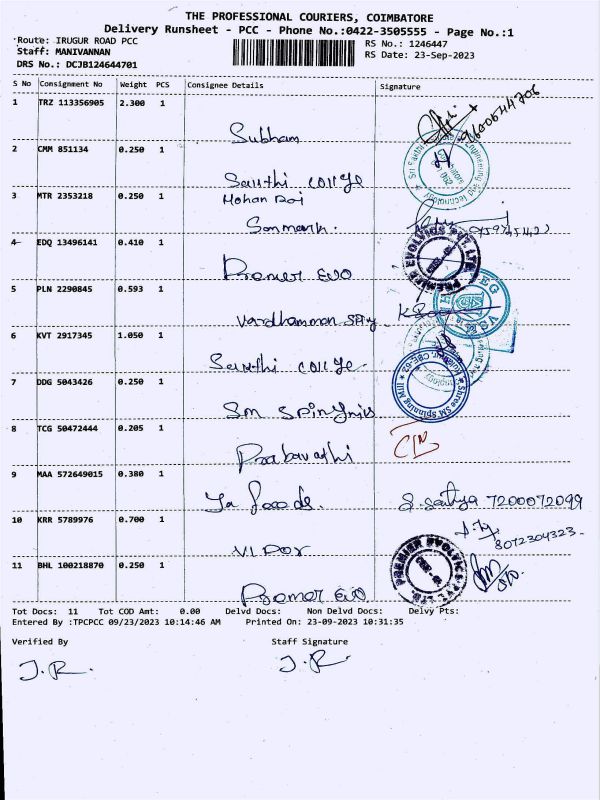 THE PROFESSIONAL COURIERS, COIMBATORE
Delivery Runsheet - PCC - Phone No.:0422-3505555 - Page No.:1
Route: IRUGUR ROAD PCC
RS No.: 1246447
Staff: MANIVANNAN
RS Date: 23-Sep-2023
DRS No.: DCJB124644701
S No Consignment No Weight PCS Consignee Details Signature
1 TRZ 113356905 2.300 1
Subham 9600644706
2 CMM 851134 0.250 1
Sakthi college
3 MTR 2353218 0.250 1
Mohan Raj
Sanmark.
4 EDQ 13496141 0.410 1
Premer Evo PREMIER EVOLVICS PVT. LTD.
5 PLN 2290845 0.593 1
Vardhamman
6 KVT 2917345 1.050 1
Sakthi college
7 DDG 5043426 0.250 1
Sm Shree SM Spinning Mill
8 TCG 50472444 0.205 1
Prabavathi
9 MAA 572649015 0.380 1
Ya foods. S. Sathya 7200072099
10 KRR 5789976 0.700 1
8072304323
11 BHL 100218870 0.250 1
Premer Evo PREMIER EVOLVICS PVT. LTD.
Tot Docs: 11 Tot COD Amt: 0.00 Delvd Docs: Non Delvd Docs: Delvy Pts:
Entered By :TPCPCC 09/23/2023 10:14:46 AM Printed On: 23-09-2023 10:31:35
Verified By Staff Signature
J.R. J.R